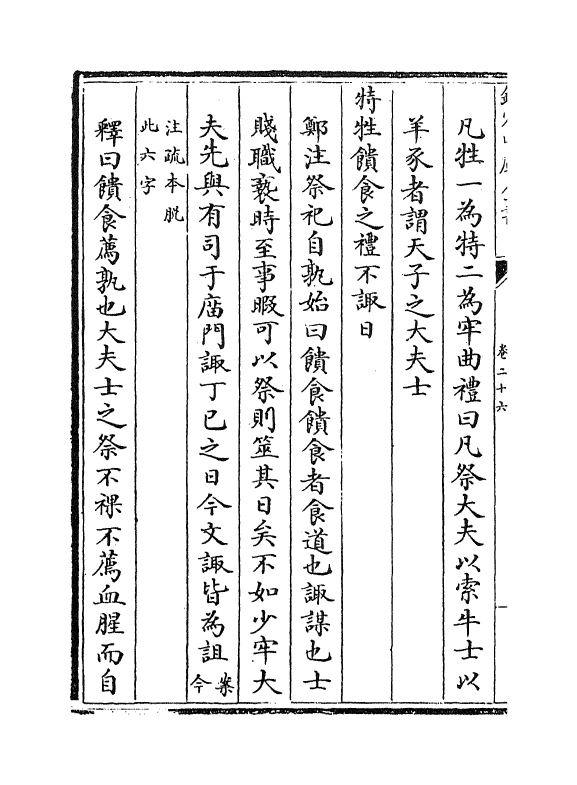 卷二十六
凡牲一為特二為牢曲禮曰凡祭大夫以索牛士以
羊豕者謂天子之大夫士
特牲饋食之禮不諏日
鄭注祭祀自孰始曰饋食饋食者食道也諏謀也士
賤職褻時至事暇可以祭則筮其日矣不如少牢大
夫先與有司于廟門諏丁巳之日今文諏皆為詛案今
注疏本脫
此六字
釋曰饋食薦孰也大夫士之祭不祼不薦血腥而自